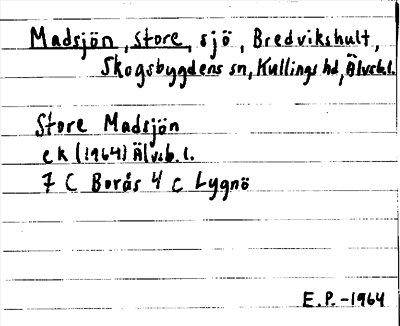 Madsjön, store, sjö, Bredvikshult,
Skogsbygdens sn, Kullings hd, Älvsb.l.
Store Madsjön
ek (1964) Älvsb. l.
7 C Borås 4 c Lygnö
E.P.-1964